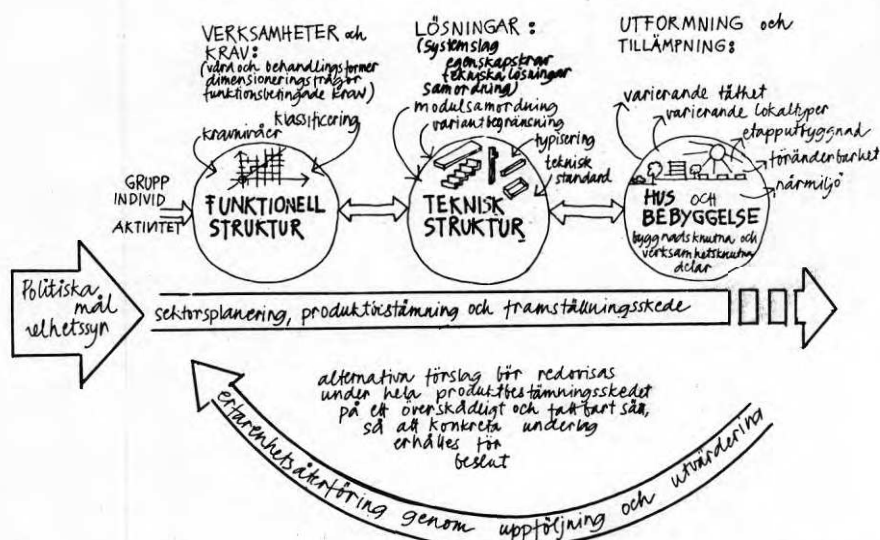 VERKSAMHETER och
KRAV:
(vård och behandlingsformer
dimensioneringsfrågor
funktionsbetingade krav)
kravnivåer
klassificering
GRUPP
INDIVID
AKTIVITET
FUNKTIONELL
STRUKTUR
LÖSNINGAR:
(systemslag
egenskapskrav
tekniska lösningar
samordning)
modulsamordning
variantbegränsning
typisering
teknisk
standard
TEKNISK
STRUKTUR
UTFORMNING och
TILLÄMPNING:
varierande täthet
varierande lokaltyper
etapputbyggnad
föränderbarhet
närmiljö
HUS OCH
BEBYGGELSE
byggnadsknutna och
verksamhetsknutna
delar
Politiska
mål
helhetssyn
sektorsplanering, produktbestämning och framställningsskede
alternativa förslag bör redovisas
under hela produktbestämningsskedet
på ett överskådligt och fattbart sätt,
så att konkreta underlag
erhålles för
beslut
erfarenhetsåterföring genom uppföljning och utvärdering